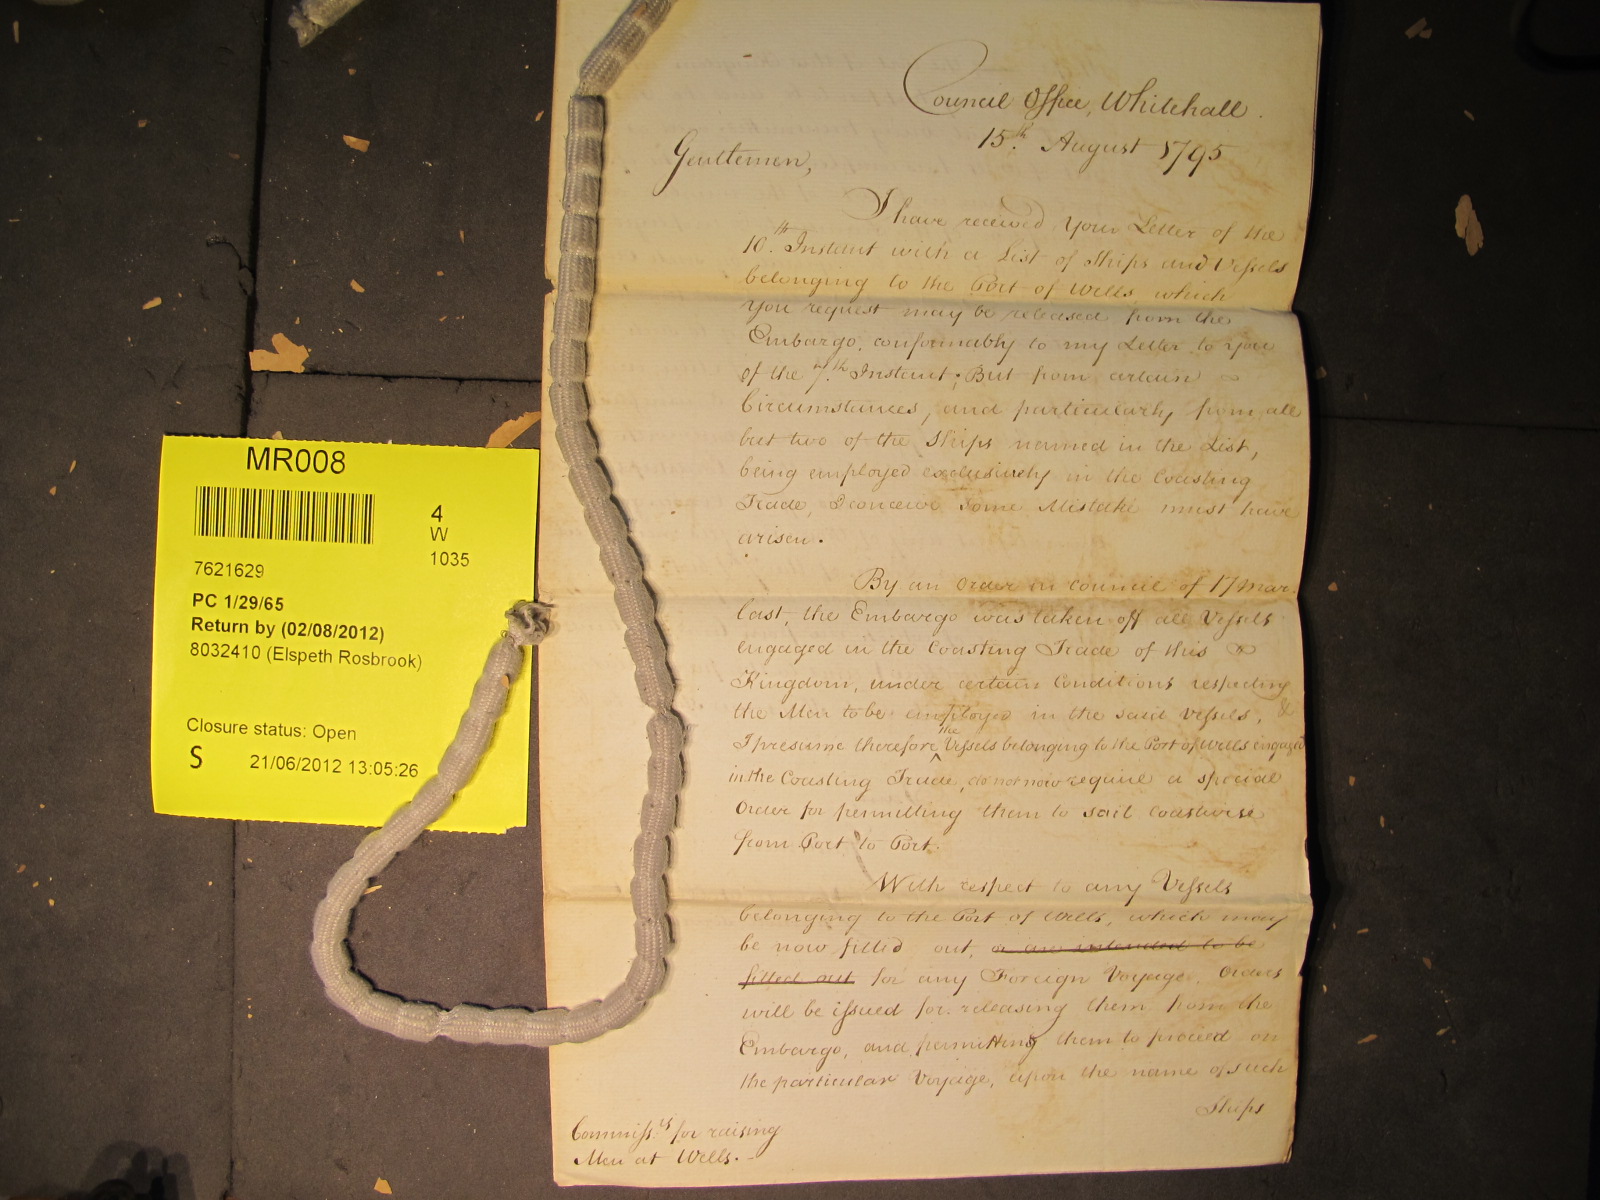 Council Office, Whitehall.
15th. August 1795
Gentlemen,
I have received Your Letter of the
10th. Instant with a List of Ships and Vessels
belonging to the Port of Wells, which
you request may be released from the
Embargo, conformably to my Letter to you
of the 7th. Instant; But from certain
Circumstances, and particularly from all
but two of the Ships named in the List,
being employed exclusively in the Coasting
Trade, I conceive some Mistake must have
arisen.
By an Order in Council of 17 Mar.
last, the Embargo was taken off all Vessels
engaged in the Coasting Trade of this
Kingdom, under certain Conditions respecting
the Men to be employed in the said Vessels, &
I presume therefore the Vessels belonging to the Port of Wells engaged
in the Coasting Trade, do not now require a special
Order for permitting them to sail Coastwise
from Port to Port.
With respect to any Vessels
belonging to the Port of Wells, which may
be now fitted out, or are intended to be
fitted out for any Foreign Voyage, Orders
will be issued for releasing them from the
Embargo, and permitting them to proceed on
the particular Voyage, upon the name of such
Ships
Commissrs for raising
Men at Wells.
MR008
4
W
1035
7621629
PC 1/29/65
Return by (02/08/2012)
8032410 (Elspeth Rosbrook)
Closure status: Open
S 21/06/2012 13:05:26